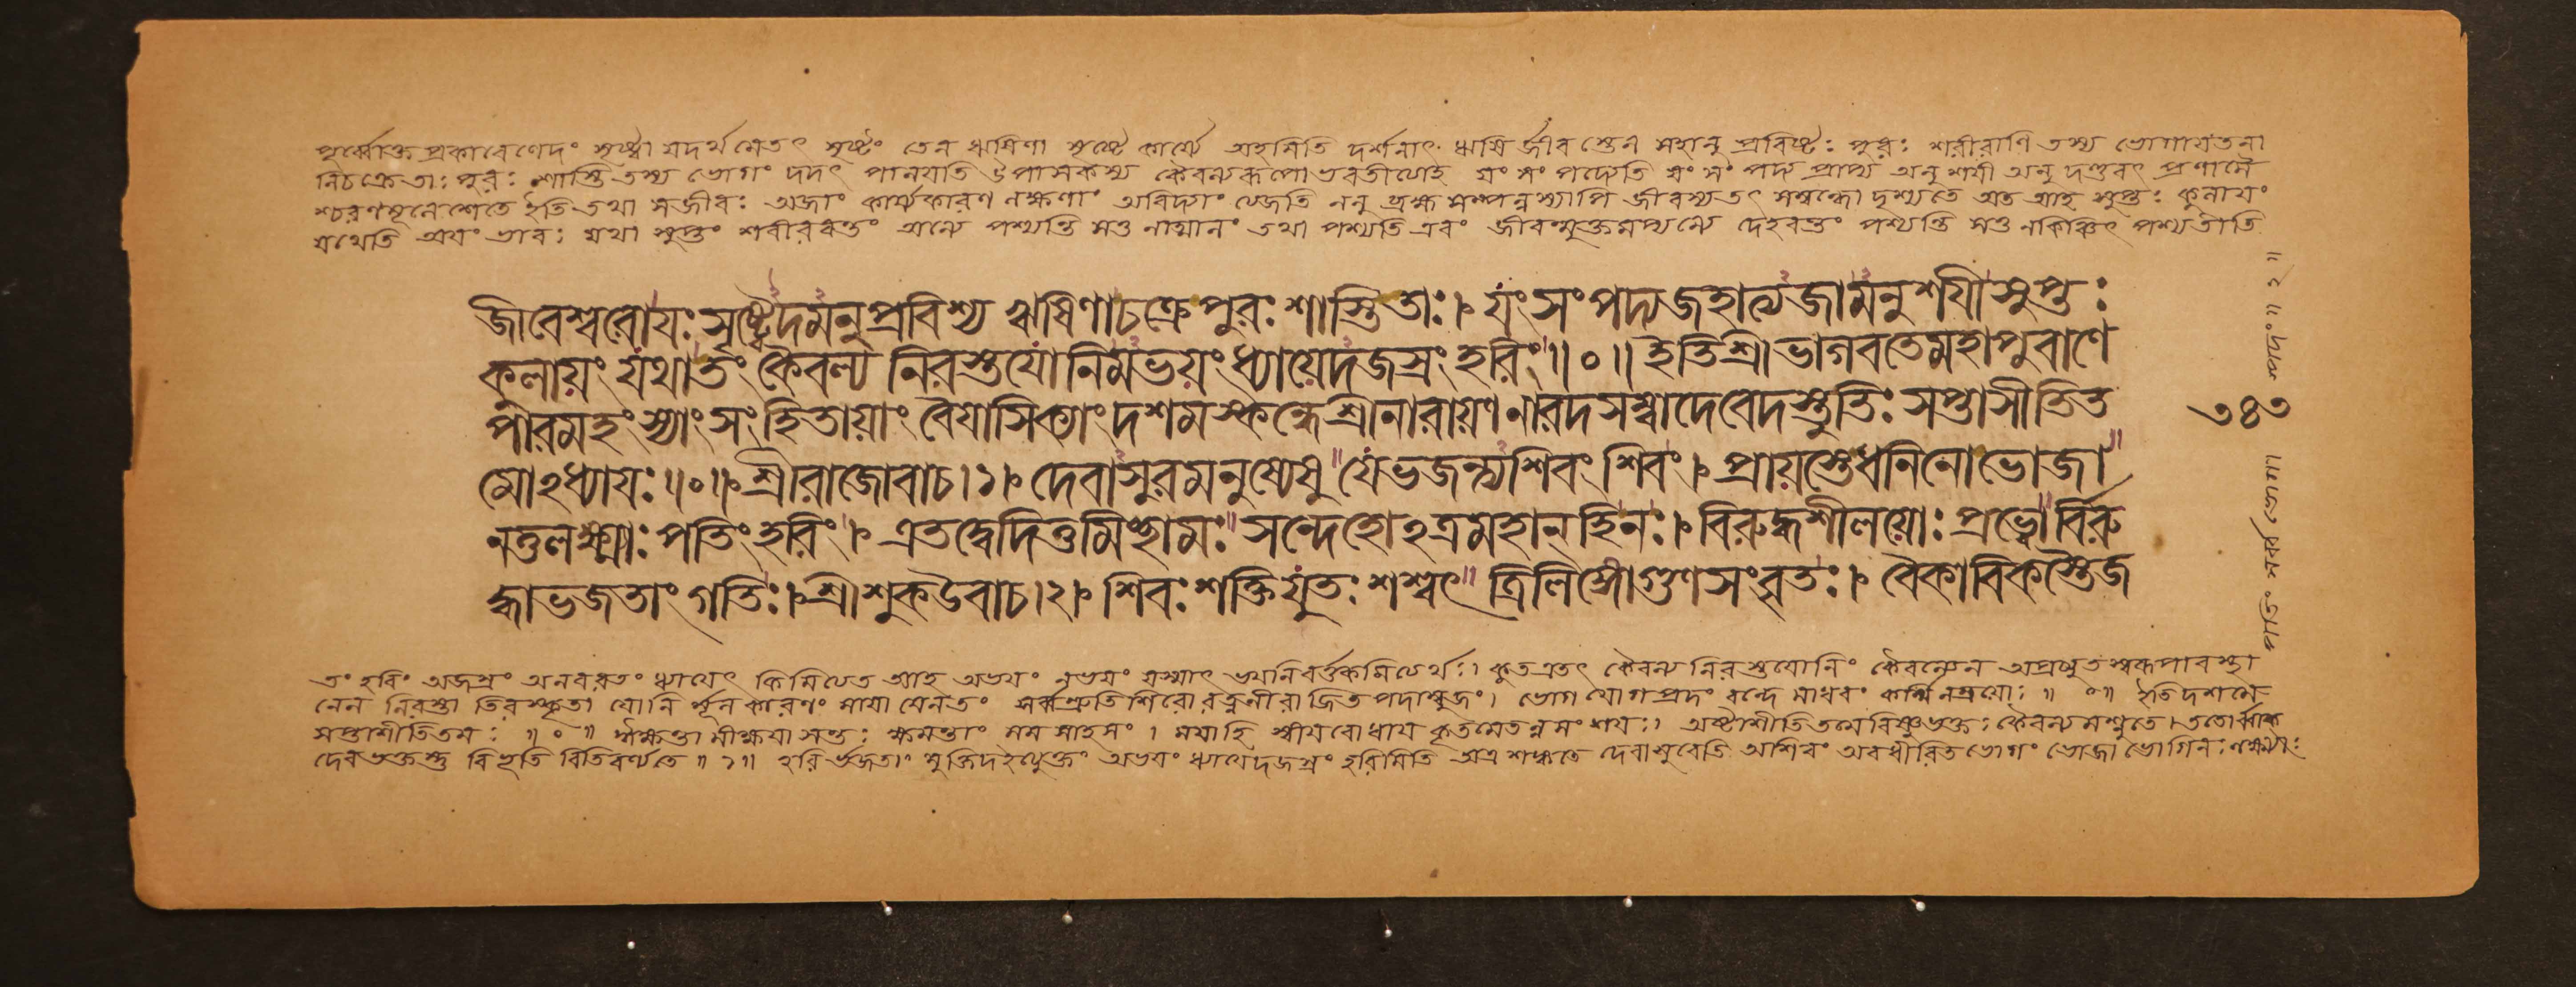 পূর্ব্বোক্ত প্রকারেণেদং সৃষ্ট্বা যদর্থমেতৎ সৃষ্টং তেন ঋষিণা সৃষ্টে কার্য্যে অহমিতি দর্শনাৎ ঋষি র্জীবস্তেন সহানু প্রবিষ্টঃ পুরঃ শরীরাণি তস্য ভোগায়তনা
নিচক্রেতাঃ পুরঃ শাস্তি তস্য ভোগং দদৎ পালয়তি উপাসকস্য কৈবল্যরূপো ভবতীত্যাহ যং সং পদ্যেতি যং সং পদ্য প্রাপ্য অনুশয়ী অনু দণ্ডবৎ প্রণামৈ
শ্চরণমূলে শেতে ইতি তথা স জীবঃ অজাং কার্য্যকারণ লক্ষণাং অবিদ্যাং ত্যজতি ননু ব্রহ্ম সম্পন্নস্যাপি জীবস্য তৎ সম্বন্ধো দৃশ্যতে অত আহ সুপ্তঃ কুলায়ং
যথেতি অয়ং ভাবঃ যথা সুপ্তং শরীরবন্তং অন্যে পশ্যন্তি সতু নাত্মানং তথা পশ্যতি এবং জীবন্মুক্তমপ্যন্যে দেহবন্তং পশ্যন্তি সতু নকিঞ্চিৎ পশ্যতীতি
জীবেশ্বরোযঃ সৃষ্ট্বেদমনুপ্রবিশ্য ঋষিণাচক্রেপুরঃ শাস্তিতাঃ। যংসংপদ্যজহাত্যজামনুশয়ীসুপ্তঃ
কুলায়ং যথাতং কৈবল্য নিরস্তযোনিমভয়ং ধ্যায়েদজস্রং হরিং॥০॥ ইতিশ্রীভাগবতেমহাপুরাণে
পারমহংস্যাং সংহিতায়াং বৈয়াসিক্যাং দশমস্কন্ধেশ্রীনারায়ণনারদসম্বাদেবেদস্তুতিঃ সপ্তাসীতিত
৩৪৩
মোঽধ্যায়ঃ॥০॥ শ্রীরাজোবাচ।১। দেবাসুরমনুষ্যেষু যেভজন্ত্যশিবং শিবং। প্রায়স্তেধনিনোভোজা
নতুলক্ষ্ম্যাঃ পতিং হরিং। এতদ্বেদিতুমিচ্ছামঃ সন্দেহোঽত্রমহান্ হিনঃ। বিরুদ্ধশীলয়োঃ প্রভ্বোর্বিরু
দ্ধাভজতাং গতিঃ। শ্রীশুকউবাচ।২। শিবঃ শক্তিযুতঃ শশ্বৎ ত্রিলিঙ্গোগুণসংবৃতঃ। বৈকারিকস্তৈজ
তং হরিং অজস্রং অনবরতং ধ্যায়েৎ কিমিত্যত আহ অভয়ং নভয়ং যস্মাৎ ভয়নিবর্ত্তকমিত্যর্থঃ। কুত এতৎ কৈবল্য নিরস্তযোনিং কৈবল্যেন অপ্রচ্যুত স্বরূপাবস্থা
নেন নিরস্তা তিরস্কৃতা যোনি র্মূল কারণং মায়া যেন তং সর্ব্বশ্রুতি শিরোরত্ননীরাজিত পদাম্বুজং। ভোগ যোগ প্রদং বন্দে মাধবং কর্ম্মিনম্রয়োঃ॥০॥ ইতি দশমে
সপ্তাশীতিতমঃ॥০॥ ক্ষমন্তাং মম সাহসং। ময়া হি স্বীয়বোধায় কৃতমেতন্নসংশয়ঃ। অষ্টাশীতিতমে বিষ্ণুভক্তঃ কৈবল্যমশ্নুতে।
দেবভক্তস্তু বিভূতি রিতিবর্ণ্যতে॥১॥ হরির্ভজতাং মুক্তিদইত্যুক্তং অভয়ং ধ্যায়েদজস্রং হরিমিতি অত্র শঙ্কতে দেবাসুরেতি অশিবং অবধীরিতভোগং ভোজা ভোগিনঃ লক্ষ্ম্যাঃ
পতিং সর্ব্ব ভোগা স্পদং॥১॥